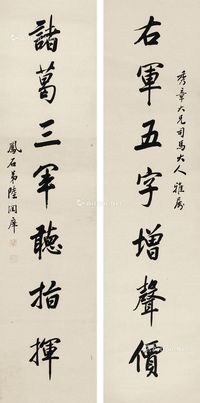 秀章大兄司馬大人雅屬
右軍五字增聲價
諸葛三軍聽指揮
鳳石弟陸潤庠